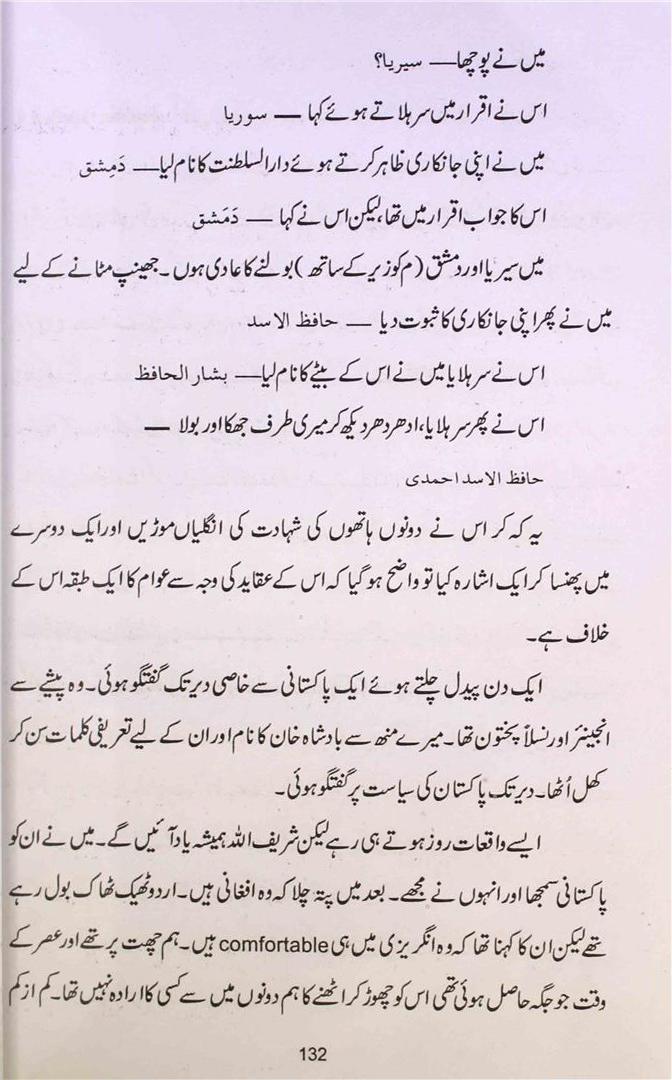 میں نے پوچھا— سیریا؟
اس نے اقرار میں سر ہلاتے ہوئے کہا — سوریا
میں نے اپنی جانکاری ظاہر کرتے ہوئے دارالسلطنت کا نام لیا— دَمِشق
اس کا جواب اقرار میں تھا، لیکن اس نے کہا — دَمَشق
میں سیریا اور دمشق (م کو زیر کے ساتھ) بولنے کا عادی ہوں۔ جھینپ مٹانے کے لیے
میں نے پھر اپنی جانکاری کا ثبوت دیا — حافظ الاسد
اس نے سر ہلایا میں نے اس کے بیٹے کا نام لیا— بشار الحافظ
اس نے پھر سر ہلایا، ادھر دھر دیکھ کر میری طرف جھکا اور بولا —
حافظ الاسد احمدی
یہ کہہ کر اس نے دونوں ہاتھوں کی شہادت کی انگلیاں موڑیں اور ایک دوسرے
میں پھنسا کر ایک اشارہ کیا تو واضح ہو گیا کہ اس کے عقاید کی وجہ سے عوام کا ایک طبقہ اس کے
خلاف ہے۔
ایک دن پیدل چلتے ہوئے ایک پاکستانی سے خاصی دیر تک گفتگو ہوئی۔ وہ پیشے سے
انجینئر اور نسلاً پختون تھا۔ میرے منھ سے بادشاہ خان کا نام اور ان کے لیے تعریفی کلمات سن کر
کھل اُٹھا۔ دیر تک پاکستان کی سیاست پر گفتگو ہوئی۔
ایسے واقعات روز ہوتے ہی رہے لیکن شریف اللہ ہمیشہ یاد آئیں گے۔ میں نے ان کو
پاکستانی سمجھا اور انہوں نے مجھے۔ بعد میں پتہ چلا کہ وہ افغانی ہیں۔ اردو ٹھیک ٹھاک بول رہے
تھے لیکن ان کا کہنا تھا کہ وہ انگریزی میں ہی comfortable ہیں۔ ہم چھت پر تھے اور عصر کے
وقت جو جگہ حاصل ہوئی تھی اس کو چھوڑ کر اٹھنے کا ہم دونوں میں سے کسی کا ارادہ نہیں تھا۔ کم از کم
132